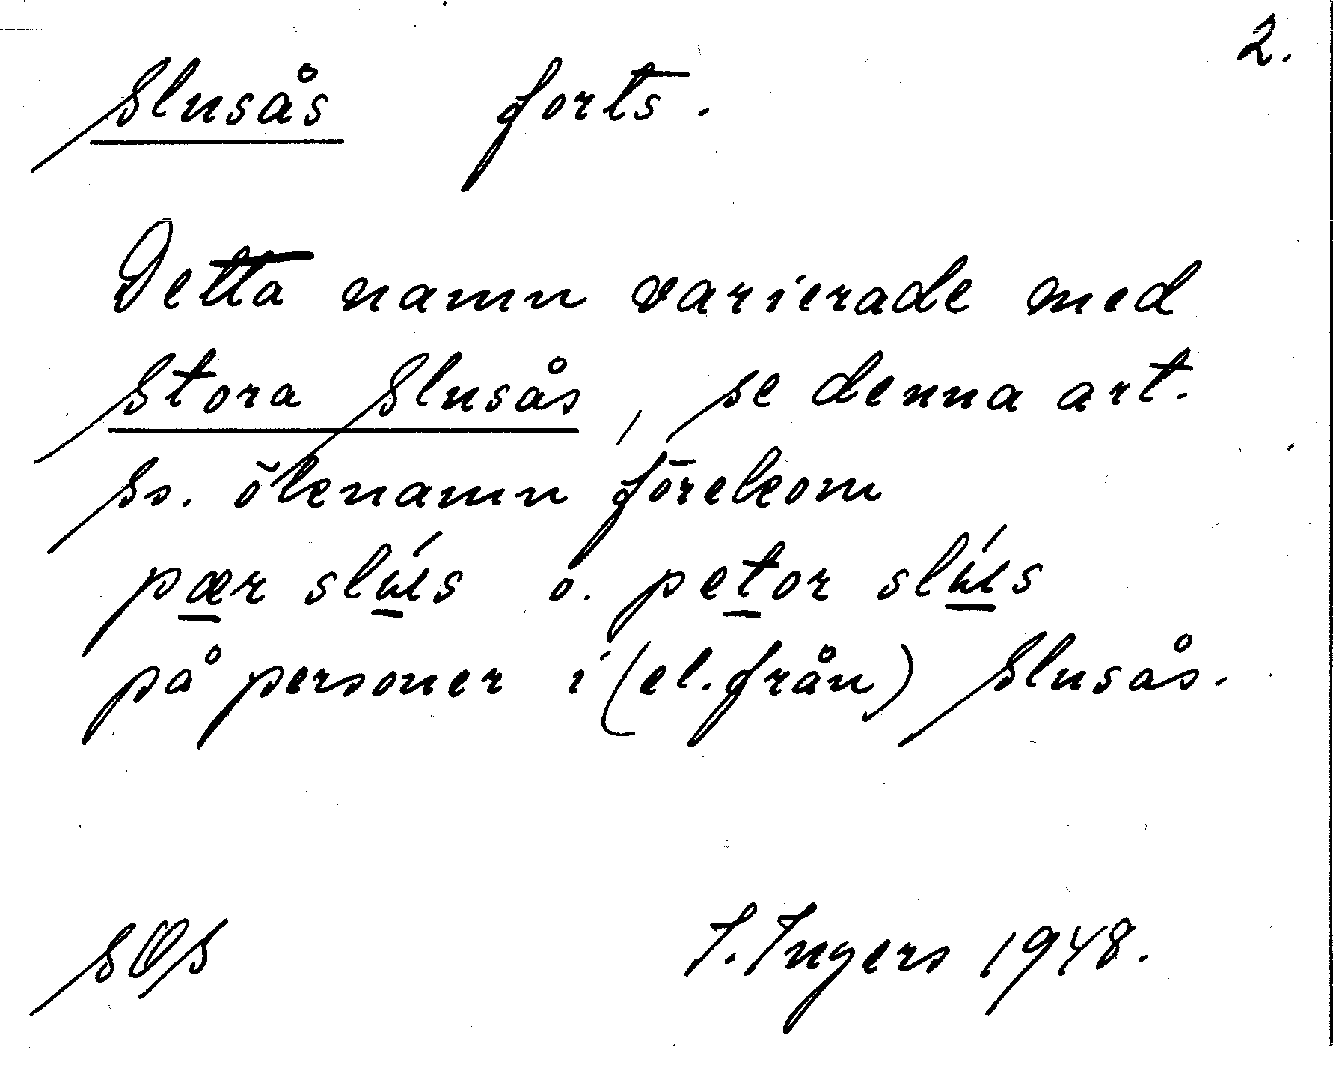 2.
Slusås forts.
Detta namn varierade med
Stora Slusås, se denna art.
Ss. öknamn förekom
pær slús o. petor slús
på personer i (el. från) Slusås.
SOS I. Ingers 1948.